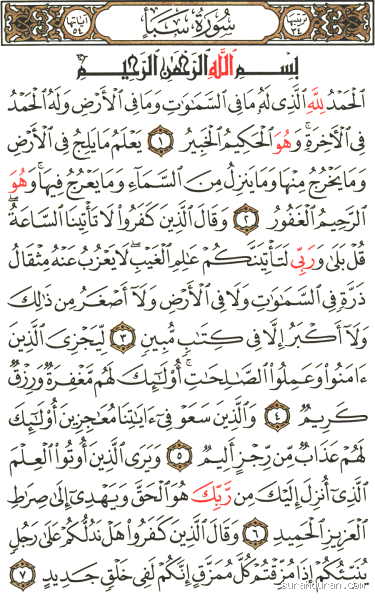 ترتيبها ٣٤ سُورَةُ سَبَإٍ آياتها ٥٤
بِسْمِ ٱللَّهِ ٱلرَّحْمَٰنِ ٱلرَّحِيمِ
ٱلْحَمْدُ لِلَّهِ ٱلَّذِى لَهُۥ مَا فِى ٱلسَّمَٰوَٰتِ وَمَا فِى ٱلْأَرْضِ وَلَهُ ٱلْحَمْدُ
فِى ٱلْأَخِرَةِ ۚ وَهُوَ ٱلْحَكِيمُ ٱلْخَبِيرُ ١ يَعْلَمُ مَا يَلِجُ فِى ٱلْأَرْضِ
وَمَا يَخْرُجُ مِنْهَا وَمَا يَنزِلُ مِنَ ٱلسَّمَآءِ وَمَا يَعْرُجُ فِيهَا ۚ وَهُوَ
ٱلرَّحِيمُ ٱلْغَفُورُ ٢ وَقَالَ ٱلَّذِينَ كَفَرُوا۟ لَا تَأْتِينَا ٱلسَّاعَةُ ۖ
قُلْ بَلَىٰ وَرَبِّى لَتَأْتِيَنَّكُمْ عَٰلِمِ ٱلْغَيْبِ ۖ لَا يَعْزُبُ عَنْهُ مِثْقَالُ
ذَرَّةٍ فِى ٱلسَّمَٰوَٰتِ وَلَا فِى ٱلْأَرْضِ وَلَآ أَصْغَرُ مِن ذَٰلِكَ
وَلَآ أَكْبَرُ إِلَّا فِى كِتَٰبٍ مُّبِينٍ ٣ لِّيَجْزِىَ ٱلَّذِينَ
ءَامَنُوا۟ وَعَمِلُوا۟ ٱلصَّٰلِحَٰتِ ۚ أُو۟لَٰٓئِكَ لَهُم مَّغْفِرَةٌ وَرِزْقٌ
كَرِيمٌ ٤ وَٱلَّذِينَ سَعَوْ فِىٓ ءَايَٰتِنَا مُعَٰجِزِينَ أُو۟لَٰٓئِكَ
لَهُمْ عَذَابٌ مِّن رِّجْزٍ أَلِيمٌ ٥ وَيَرَى ٱلَّذِينَ أُوتُوا۟ ٱلْعِلْمَ
ٱلَّذِىٓ أُنزِلَ إِلَيْكَ مِن رَّبِّكَ هُوَ ٱلْحَقَّ وَيَهْدِىٓ إِلَىٰ صِرَٰطِ
ٱلْعَزِيزِ ٱلْحَمِيدِ ٦ وَقَالَ ٱلَّذِينَ كَفَرُوا۟ هَلْ نَدُلُّكُمْ عَلَىٰ رَجُلٍ
يُنَبِّئُكُمْ إِذَا مُزِّقْتُمْ كُلَّ مُمَزَّقٍ إِنَّكُمْ لَفِى خَلْقٍ جَدِيدٍ ٧
surahquran.com